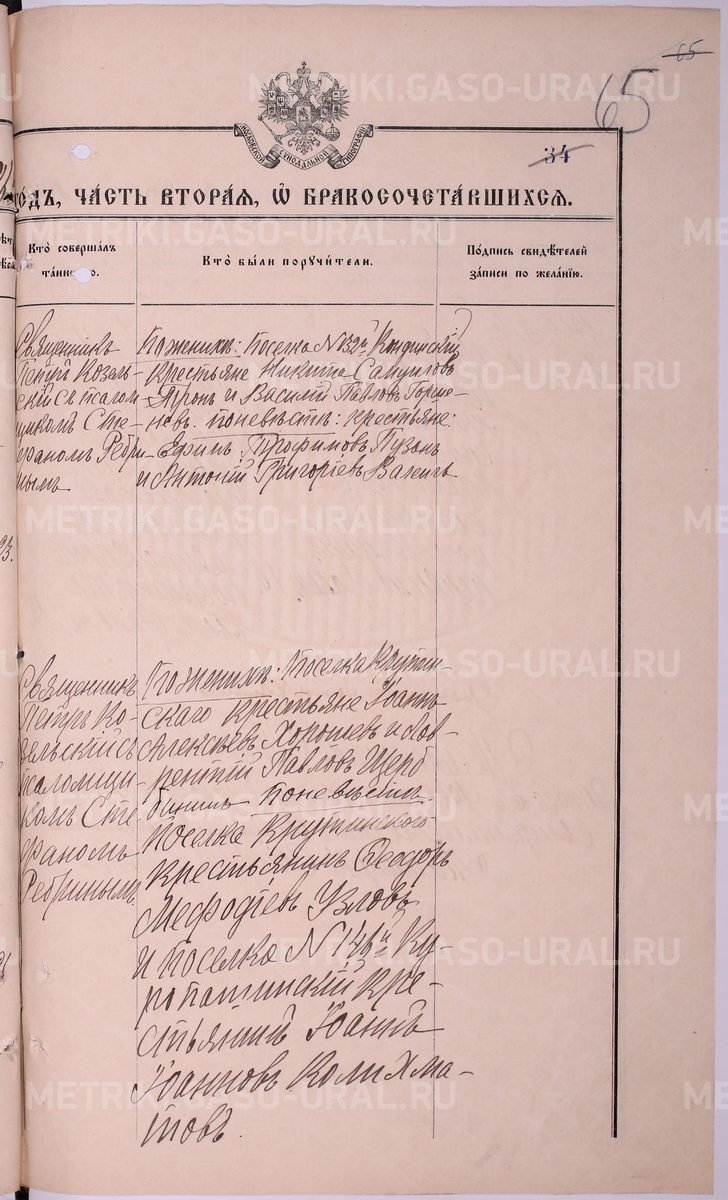 65
65
34
МОСКОВСКОЙ СѴНОДАЛЬНОЙ ТИПОГРАФІИ
го́дъ, ча́сть втора́ѧ, ѡ҆ бракосочета́вшихсѧ.
Кто̀ соверша́лъ та́инство.
Кто̀ бы́ли порꙋчи́тели.
По́дпись свидѣ́телей за́писи по жела́нїю.
Священникъ
Петръ Козель-
скій съ псалом
щикомъ Сте-
фаномъ Ребри-
нымъ
По женихѣ: Поселка N 132й
крестьяне Никита Самуиловъ
и Василій Павловъ Горше-
невъ. по невѣстѣ: крестьяне:
Ефимъ Трофимовъ Пузонъ
и Антоній Григоріевъ
23.
Священникъ
Петръ Ко-
зельскій съ
псаломщи-
комъ Сте
фаномъ
Ребринымъ
По женихѣ: Поселка Крутин-
скаго крестьяне Іоаннъ
Алексѣевъ Хорошевъ и Лав-
рентій Павловъ Щерб
по невѣстѣ
Поселка Крутинскаго
крестьянинъ Ѳеодоръ
Мефодіевъ Узловъ
и поселка N 146й Ку-
ропатинскій кре-
стьянинъ Іоаннъ
Іоанновъ Колихма-
товъ.
METRIKI.GASO-URAL.RU